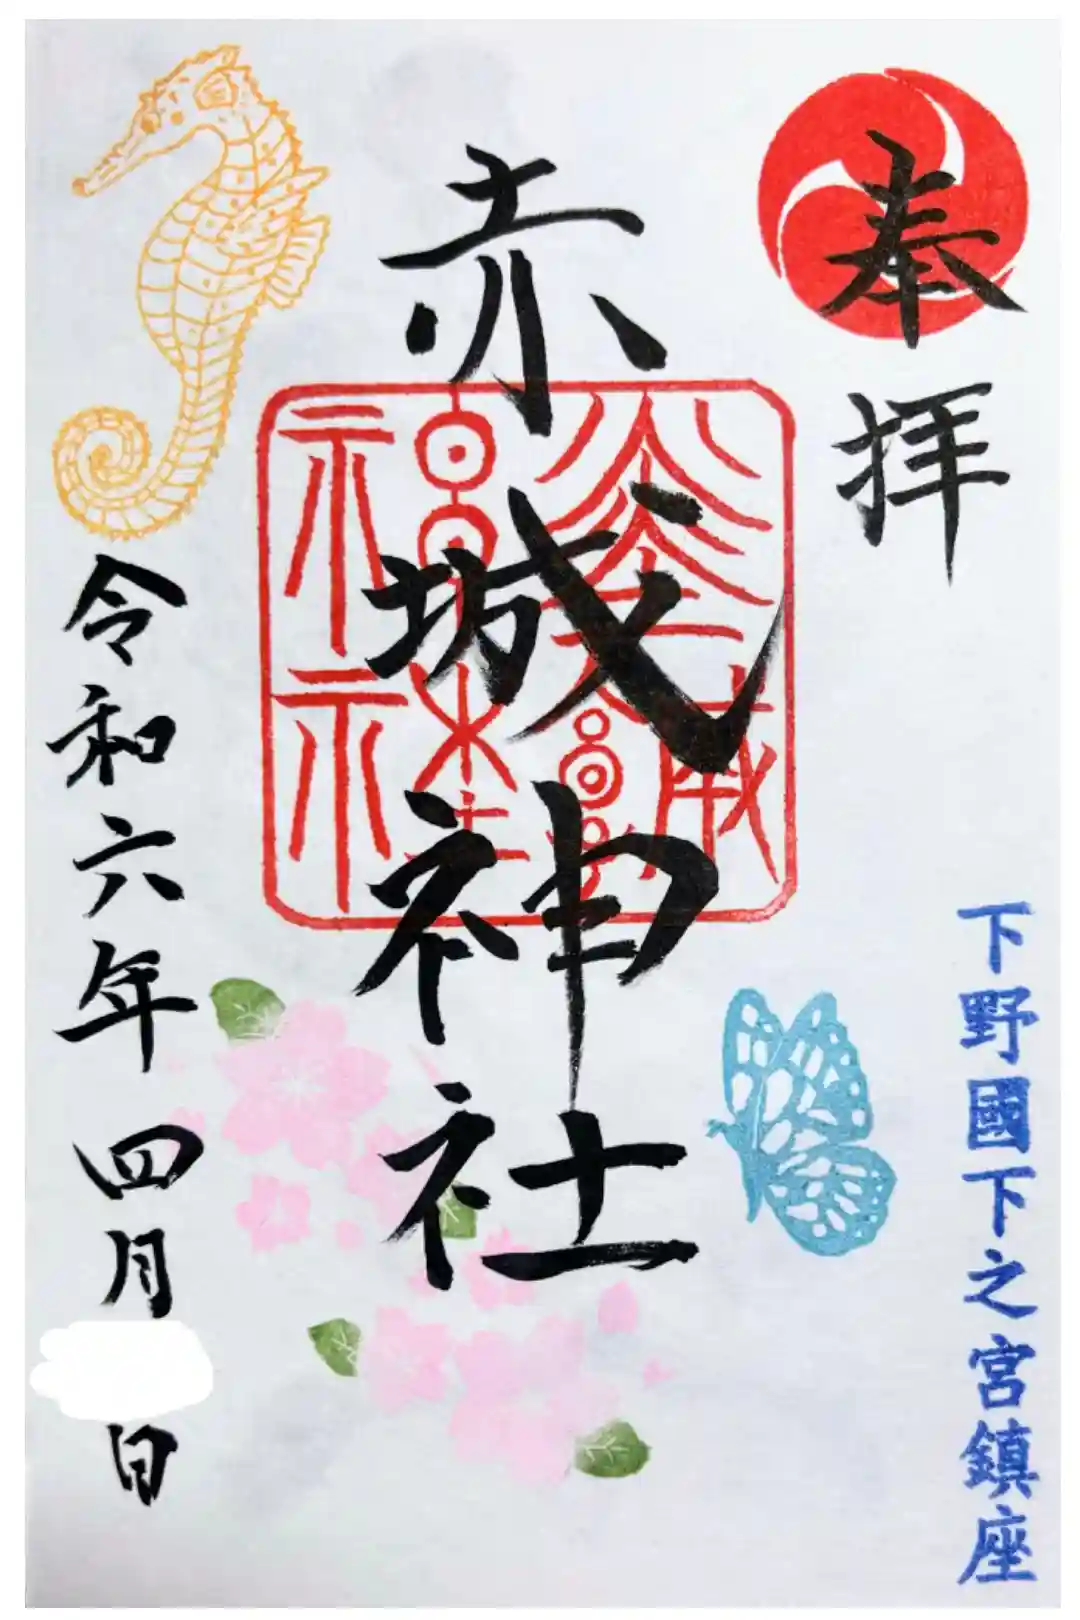 奉拝
下野國下之宮鎮座
赤城神社
令和六年四月 日